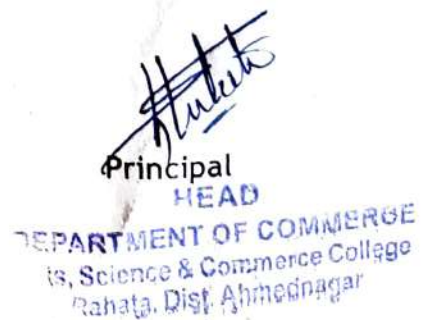 Principal
HEAD
DEPARTMENT OF COMMERCE
ts, Science & Commerce College
Rahata, Dist. Ahmednagar